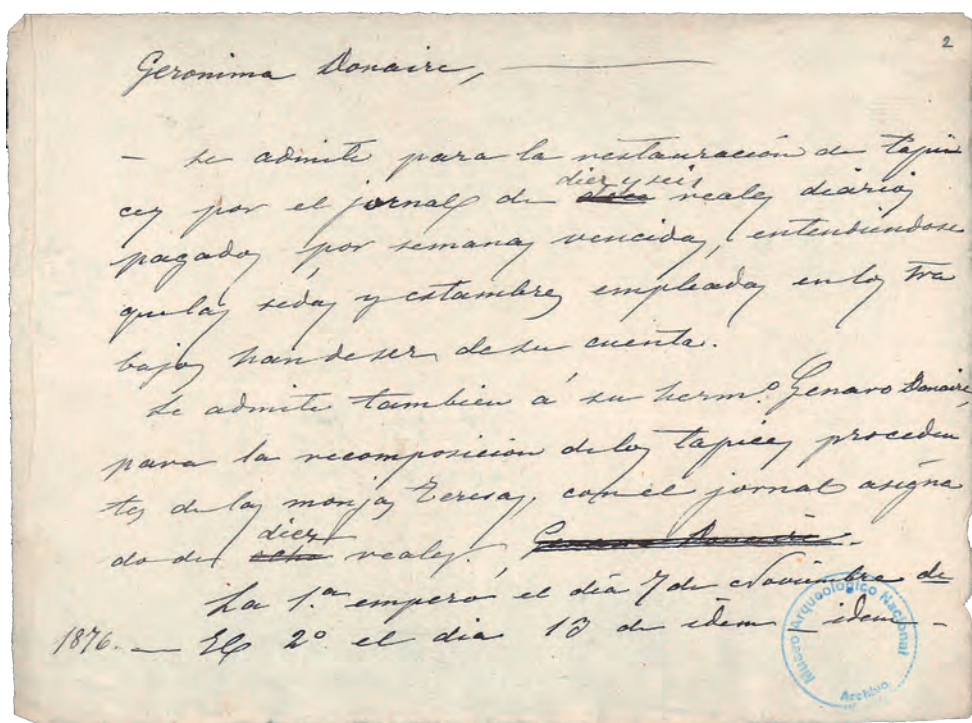 2
Geronima Donaire,
- Se admite para la restauración de tapi
ces por el jornal de diez y seis doce reales diarios
pagados por semanas vencidas, entendiendose
que las sedas y estambres empleadas en los tra
bajos han de ser de su cuenta.
Se admite tambien á su herm.º Genaro Donaire,
para la recomposicion de los tapices proceden
tes de las monjas Teresas, con el jornal asigna
do de diez ocho reales. Genaro Donaire.
La 1.ª empezó el dia 7 de Noviembre de
1876. — El 2º el dia 13 de idem idem -
Museo Arqueologico Nacional
Archivo